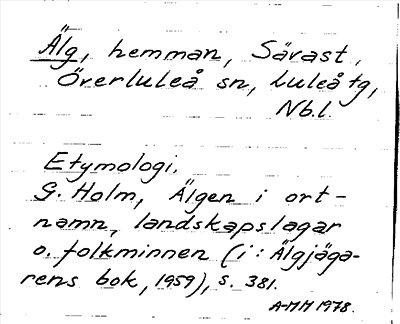 Älg, hemman, Sävast,
Överluleå sn, Luleå tg,
Nb.l.
Etymologi.
G. Holm, Älgen i ort-
namn, landskapslagar
o. folkminnen (i: Älgjäga-
rens bok, 1959), s. 381.
A-MH 1978.